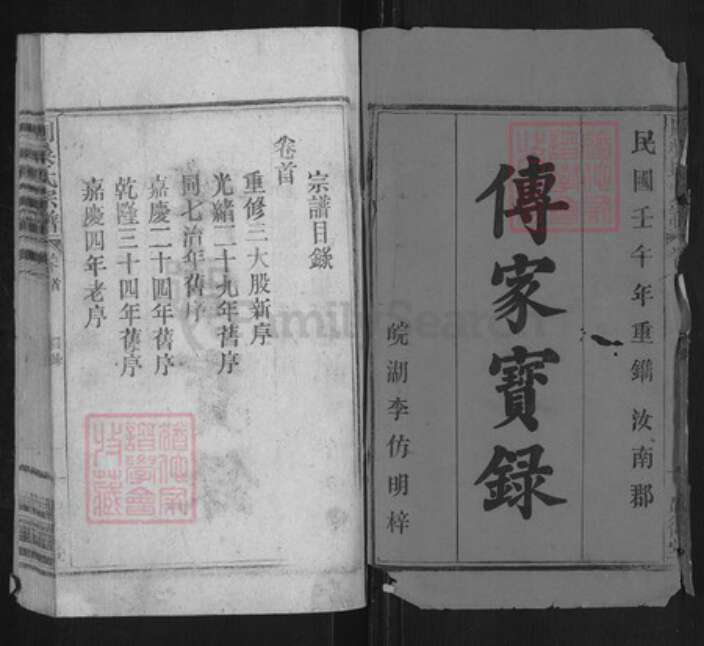 民國壬午年重鐫 汝南郡
傳家寶録
皖湖李仿明梓
宗譜目錄
卷首
重修三大股新序
光緒二十九年舊序
同七治年舊序
嘉慶二十四年舊序
乾隆三十四年舊序
嘉慶四年老序
FamilySearch